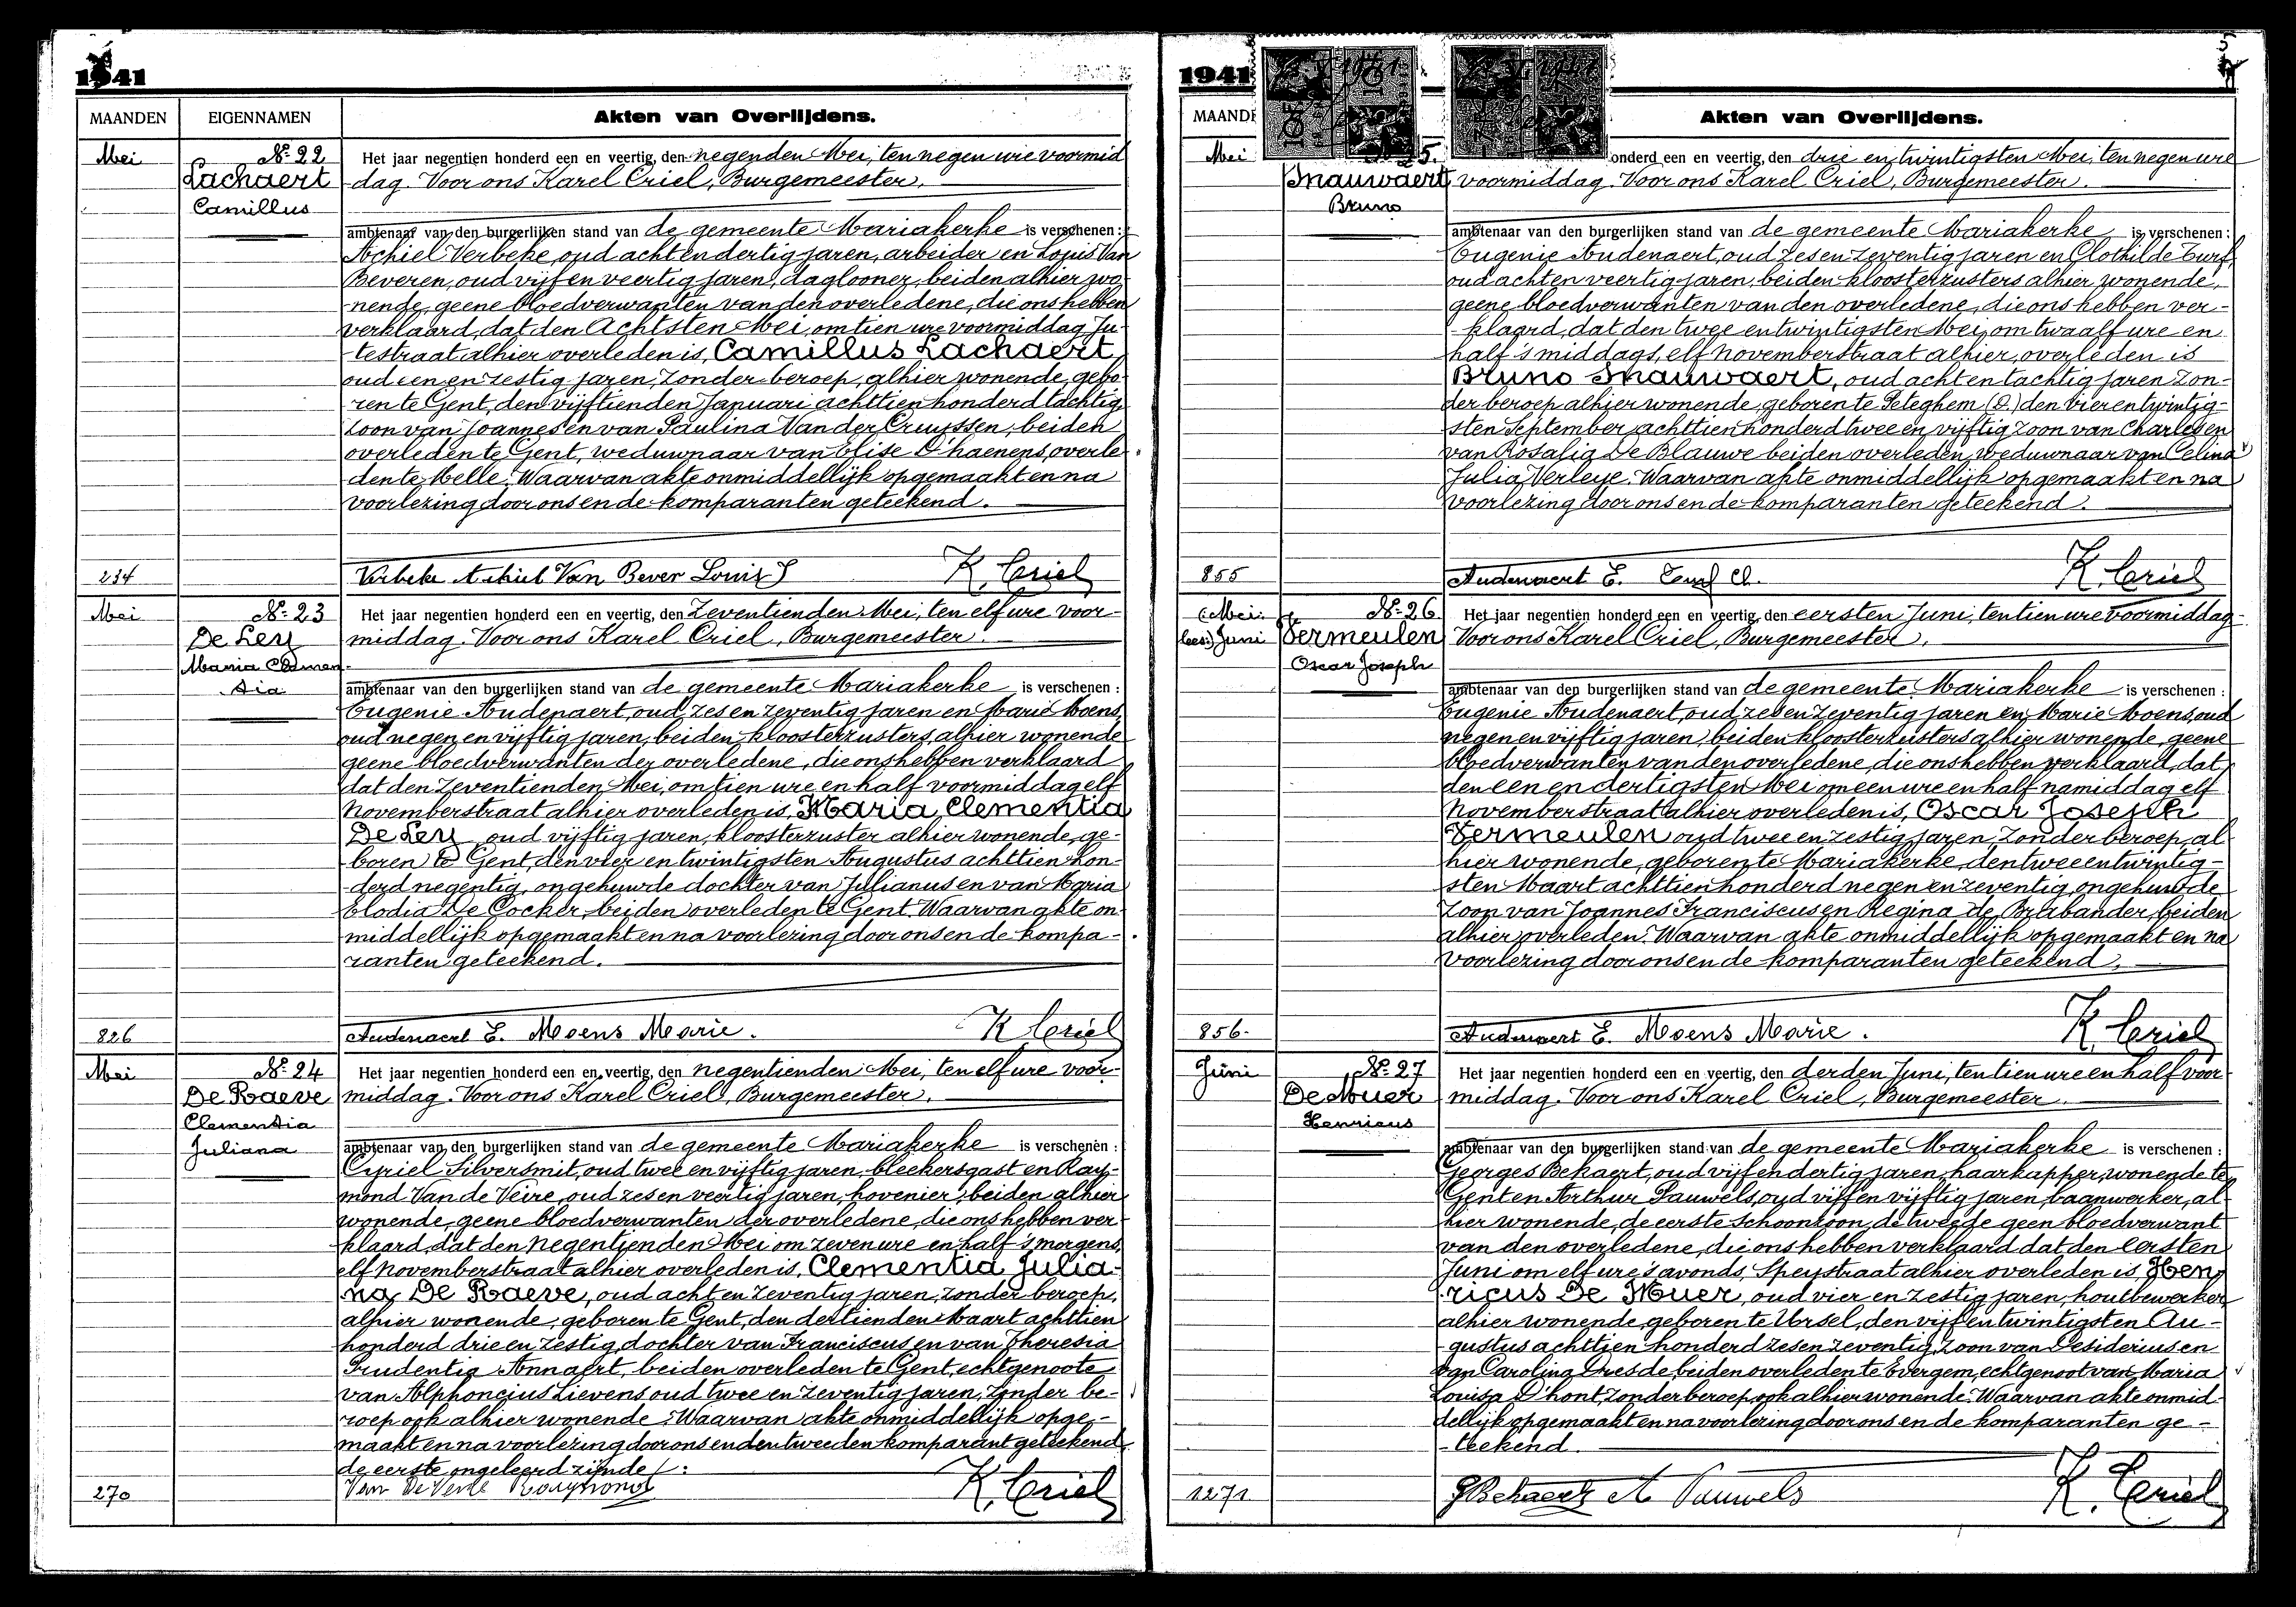 1941
MAANDEN
EIGENNAMEN
Akten van Overlijdens.
Mei
No 22
Lachaert
Camillus
Het jaar negentien honderd een en veertig, den negenden Mei, ten negen ure voormid
dag. Voor ons Karel Criel, Burgemeester.
ambtenaar van den burgerlijken stand van de gemeente Mariakerke is verschenen :
Achiel Verbeke, oud acht en dertig jaren, arbeider en Louis Van
Beveren, oud vijf en veertig jaren, daglooner, beiden alhier wo-
-nende, geene bloedverwanten van den overledene, die ons hebben
verklaard, dat den Achtsten Mei, om tien ure voormiddag Ju-
-testraat alhier overleden is, Camillus Lachaert,
oud een en zestig jaren, zonder beroep, alhier wonende, gebo-
ren te Gent, den vijftienden Januari achttien honderd tachtig
zoon van Joannes en van Paulina Van der Cruyssen, beiden
overleden te Gent, weduwnaar van Elise D'haenens, overle-
den te Melle. Waarvan akte onmiddellijk opgemaakt en na
voorlezing door ons en de komparanten geteekend.
234
Verbeke Achiel Van Bever Louis
K. Criel
Mei
No 23
De Ley
Maria Clemen-
tia
Het jaar negentien honderd een en veertig, den Zeventienden Mei, ten elf ure voor-
middag. Voor ons Karel Criel, Burgemeester.
ambtenaar van den burgerlijken stand van de gemeente Mariakerke is verschenen :
Eugenie Audenaert, oud zes en zeventig jaren en Marie Moens,
oud negen en vijftig jaren, beiden kloosterzusters, alhier wonende
geene bloedverwanten der overledene, die ons hebben verklaard
dat den Zeventienden Mei, om tien ure en half voormiddag elf
Novemberstraat alhier overleden is, Maria Clementia
De Ley, oud vijftig jaren, kloosterzuster alhier wonende, ge-
boren te Gent, den vier en twintigsten Augustus achttien hon-
-derd negentig, ongehuwde dochter van Julianus en van Maria
Elodia De Cocker, beiden overleden te Gent. Waarvan akte on-
middellijk opgemaakt en na voorlezing door ons en de kompa-
ranten geteekend.
826
Audenaert E. Moens Marie.
K Criel
Mei
No 24
De Raeve
Clementia
Juliana
Het jaar negentien honderd een en veertig, den negentienden Mei, ten elf ure voor-
middag. Voor ons Karel Criel, Burgemeester.
ambtenaar van den burgerlijken stand van de gemeente Mariakerke is verschenen :
Cyriel Silversmit, oud twee en vijftig jaren, bleekersgast en Ray-
mond Van de Veire, oud zes en veertig jaren, hovenier, beiden alhier
wonende, geene bloedverwanten der overledene, die ons hebben ver-
klaard, dat den Negentienden Mei om zeven ure en half 's morgens,
elf Novemberstraat alhier overleden is, Clementia Julia-
na De Raeve, oud acht en zeventig jaren, zonder beroep,
alhier wonende, geboren te Gent, den dertienden Maart achttien
honderd drie en zestig, dochter van Franciscus en van Theresia
Prudentia Annaert, beiden overleden te Gent, echtgenoote
van Alphoncius Lievens oud twee en zeventig jaren, zonder be-
roep ook alhier wonende. Waarvan akte onmiddellijk opge-
maakt en na voorlezing door ons en den tweeden komparant geteekend
de eerste ongeleerd zijnde :
270
K. Criel
1941
Akten van Overlijdens.
Mei
Snauwaert
Bruno
onderd een en veertig, den drie en twintigsten Mei, ten negen ure
voormiddag. Voor ons Karel Criel, Burgemeester.
ambtenaar van den burgerlijken stand van de gemeente Mariakerke is verschenen :
Eugenie Audenaert, oud zes en zeventig jaren en Clothilde Turf,
oud acht en veertig jaren, beiden kloosterzusters alhier wonende,
geene bloedverwanten van den overledene, die ons hebben ver-
-klaard, dat den twee en twintigsten Mei, om twaalf ure en
half 's middags, elf Novemberstraat alhier, overleden is
Bruno Snauwaert, oud acht en tachtig jaren zon-
der beroep alhier wonende, geboren te Peteghem (D.) den vier en twintig-
sten September achttien honderd twee en vijftig zoon van Charles en
van Rosalia De Blauwe beiden overleden, weduwnaar van Celina
Julia Verleye. Waarvan akte onmiddellijk opgemaakt en na
voorlezing door ons en de komparanten geteekend.
855
Audenaert E.
K. Criel
(Mei:
lees:) Juni
No 26
Vermeulen
Oscar Joseph
Het jaar negentien honderd een en veertig, den eersten Juni, ten tien ure voormiddag
Voor ons Karel Criel, Burgemeester.
ambtenaar van den burgerlijken stand van de gemeente Mariakerke is verschenen :
Eugenie Audenaert, oud zes en zeventig jaren en Marie Moens, oud
negen en vijftig jaren, beiden kloosterzusters alhier wonende, geene
bloedverwanten van den overledene, die ons hebben verklaard, dat
den een en dertigsten Mei om een ure en half namiddag elf
Novemberstraat alhier overleden is, Oscar Joseph
Vermeulen oud twee en zestig jaren, zonder beroep, al-
hier wonende, geboren te Mariakerke, den twee en twintig-
sten Maart achttien honderd negen en zeventig, ongehuwde
zoon van Joannes Franciscus en Regina De Brabander, beiden
alhier overleden. Waarvan akte onmiddellijk opgemaakt en na
voorlezing door ons en de komparanten geteekend.
856.
Audenaert E. Moens Marie.
K. Criel
Juni
No 27
De Muer
Henricus
Het jaar negentien honderd een en veertig, den derden Juni, ten tien ure en half voor-
middag. Voor ons Karel Criel, Burgemeester.
ambtenaar van den burgerlijken stand van de gemeente Mariakerke is verschenen :
Georges Bekaert, oud vijf en dertig jaren, haarkapper, wonende te
Gent en Arthur Pauwels, oud vijf en vijftig jaren, baanwerker, al-
hier wonende, de eerste schoonzoon, de tweede geen bloedverwant
van den overledene, die ons hebben verklaard dat den eersten
Juni om elf ure 's avonds, Speystraat alhier overleden is, Hen-
ricus De Muer, oud vier en zestig jaren, houtbewerker
alhier wonende, geboren te Ursel, den vijf en twintigsten Au-
gustus achttien honderd zes en zeventig, zoon van Desiderius en
van Carolina Dresde, beiden overleden te Evergem, echtgenoot van Maria
Louisa D'hont, zonder beroep, ook alhier wonende. Waarvan akte onmid-
dellijk opgemaakt en na voorlezing door ons en de komparanten ge-
-teekend.
1271
GBekaert A Pauwels
K. Criel